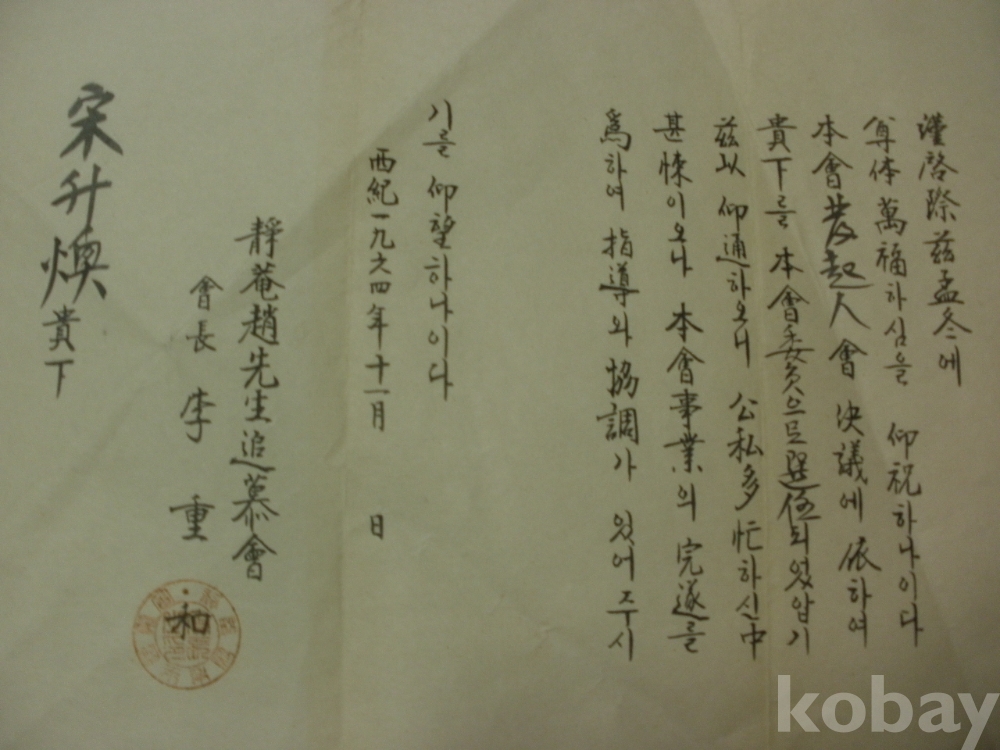 謹啓際玆孟冬에
尊体萬福하심을 仰祝하나이다
本會發起人會 決議에 依하여
貴下를 本會委員으로選任되었압기
玆以 仰通하오니 公私多忙하신中
甚悚이오나 本會事業의 完遂를
爲하여 指導와 協調가 있어주시
기를 仰望하나이다
西紀一九六四年十一月 日
靜菴趙先生追慕會
會長 李 重 和
宋升煥 貴下
kobay